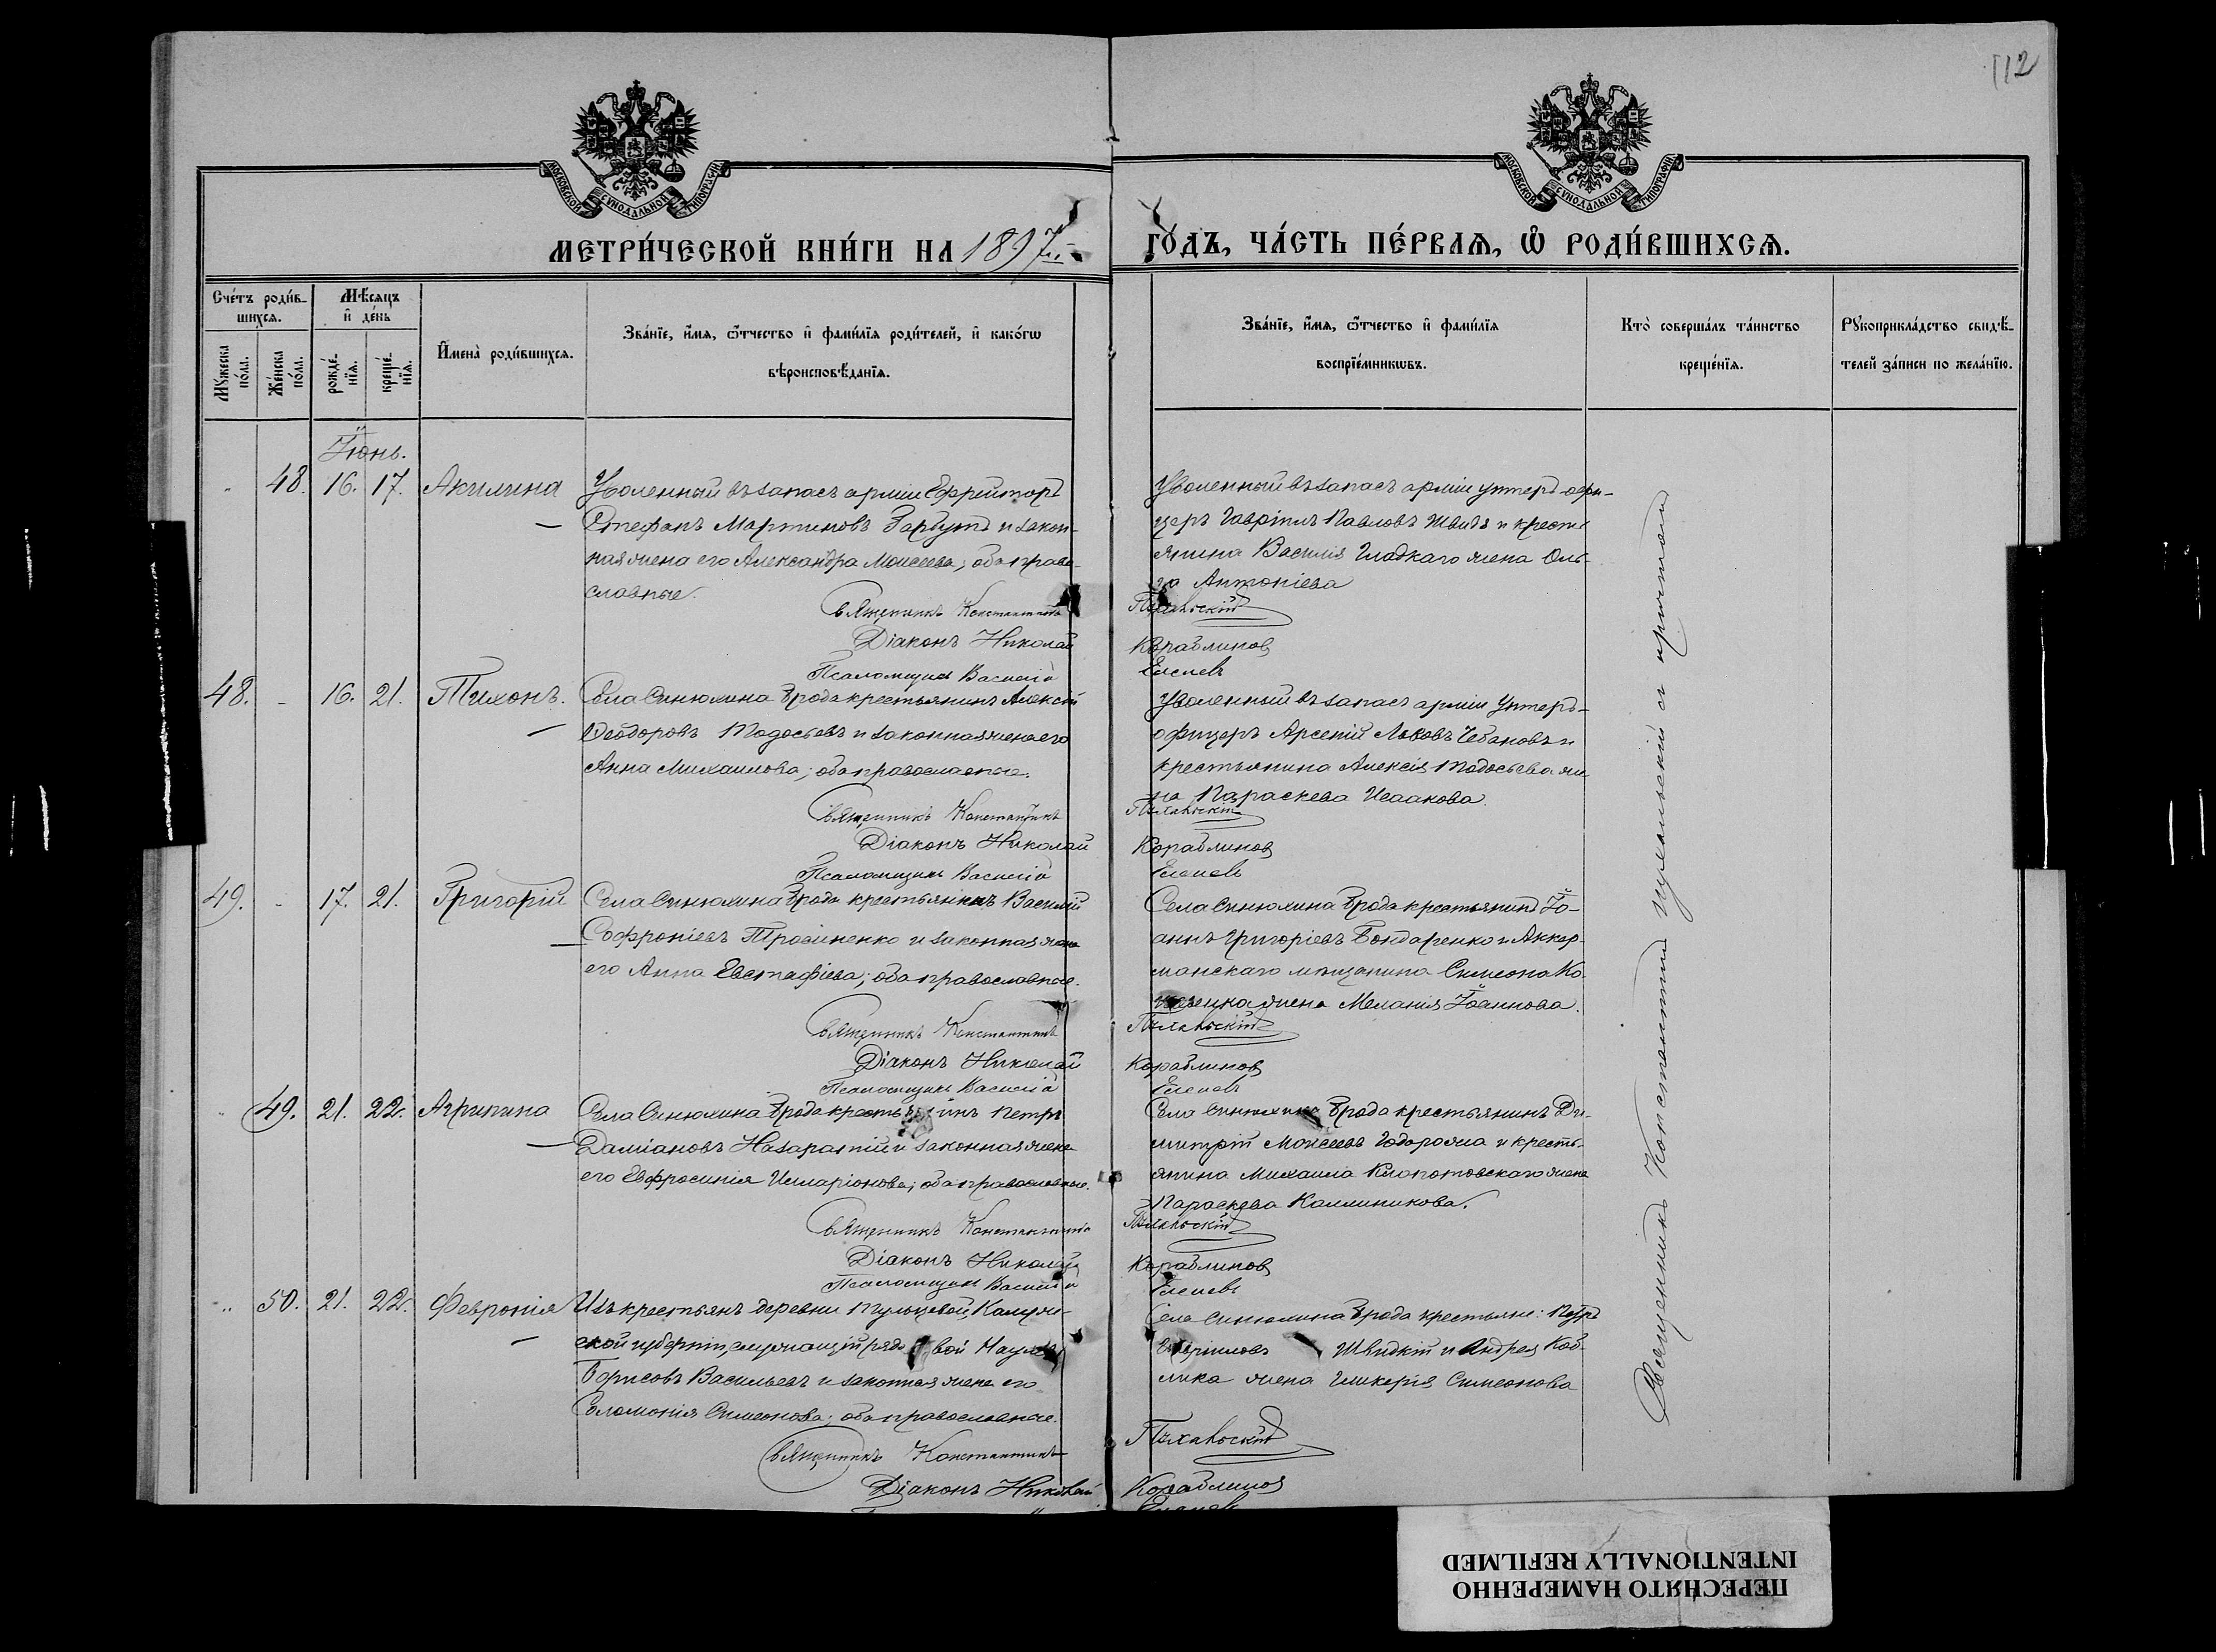 112
МОСКОВСКОЙ СУНОДАЛЬНОЙ ТИПОГРАФІИ
МОСКОВСКОЙ СУНОДАЛЬНОЙ ТИПОГРАФІИ
МЕТРИ́ЧЕСКОЙ КНИ́ГИ НА 1897
ГОДЪ, ЧА́СТЬ ПЕ́РВАѦ, Ѡ҆ РОДИ́ВШИХСѦ.
Сче́тъ роди́в-
шихсѧ.
Мꙋ́жеска по́ла.
Же́нска по́ла.
Мѣ́сѧцъ
и҆ де́нь
рожде́-
нїѧ.
креще́-
нїѧ.
И҆мена̀ роди́вшихсѧ.
Зва́нїе, и҆́мѧ, ѻ҆́тчество и҆ фами́лїѧ роди́телей, и҆ како́гѡ
вѣроисповѣ́данїѧ.
Зва́нїе, и҆́мѧ, ѻ҆́тчество и҆ фами́лїѧ
воспрїе́мникѡвъ.
Кто̀ соверша́лъ та́инство
креще́нїѧ.
Рꙋкоприкла́дство свидѣ́-
телей за́писи по жела́нїю.
Іюнь.
48. 16. 17. Акилина
Уволенный въ запасъ арміи Ефрейторъ
Стефанъ Мартиновъ Зарбутъ и закон-
ная жена его Александра Моисеева; оба право-
славные.
Священникъ Константинъ
Діаконъ Николай
Псаломщикъ Василій
Уволенный въ запасъ арміи унтеръ-офи-
церъ Гавріилъ Павловъ Швидъ и кресть
янина Василія Гладкаго жена Оль-
га Антоніева
Пѣхаовскій
Кораблиновъ
Еленевъ
48. - 16. 21. Тихонъ.
Села Синюхина Брода крестьянинъ Алексій
Ѳеодоровъ Тодосьевъ и законная жена его
Анна Михаилова; оба православные.
Священникъ Константинъ
Діаконъ Николай
Псаломщикъ Василій
Уволенный въ запасъ арміи Унтеръ-
офицеръ Арсеній Львовъ Чебановъ и
крестьянина Алексія Тодосьева же
на Параскева Исаакова.
Кораблиновъ
Еленевъ
49. - 17. 21. Григорій
Села Синюхина Брода крестьянинъ Василій
Софроніевъ Трояненко и законная жена
его Анна Евстафіева; оба православные.
Священникъ Константинъ
Діаконъ Николай
Псаломщикъ Василій
Села Синюхина Брода крестьянинъ Іо-
аннъ Григоріевъ Бондаренко и Аккер-
манскаго мѣщанина Симеона Ко-
жена Меланія Іоаннова.
Кораблиновъ
Еленевъ
49. 21. 22. Агрипина
Села Синюхина Брода крестьянинъ Петръ
Даміановъ Назаратій и законная жена
его Евфросинія Иларіонова; оба православные.
Священникъ Константинъ
Діаконъ Николай
Псаломщикъ Василій
Села Синюхина Брода крестьянинъ Ди-
митрій Моисеевъ Годорожа и кресть-
янина Михаила Клопотовскаго жена
Параскева Каллиникова.
Кораблиновъ
Еленевъ
50. 21. 22. Февронія
Изъ крестьянъ деревни Калуж-
ской губерніи, служащій рядовой Наумъ
Борисовъ Васильевъ и законная жена его
Соломонія Симеонова; оба православные.
Священникъ Константинъ
Діаконъ Николай
Села Синюхина Брода крестьяне: Петръ
Гавріиловъ Швидкій и Андрея Коб-
лика жена Гликерія Симеонова
Кораблиновъ
Еленевъ
Священникъ Константинъ съ причтомъ
ПЕРЕСНЯТО НАМЕРЕННО
INTENTIONALLY REFILMED